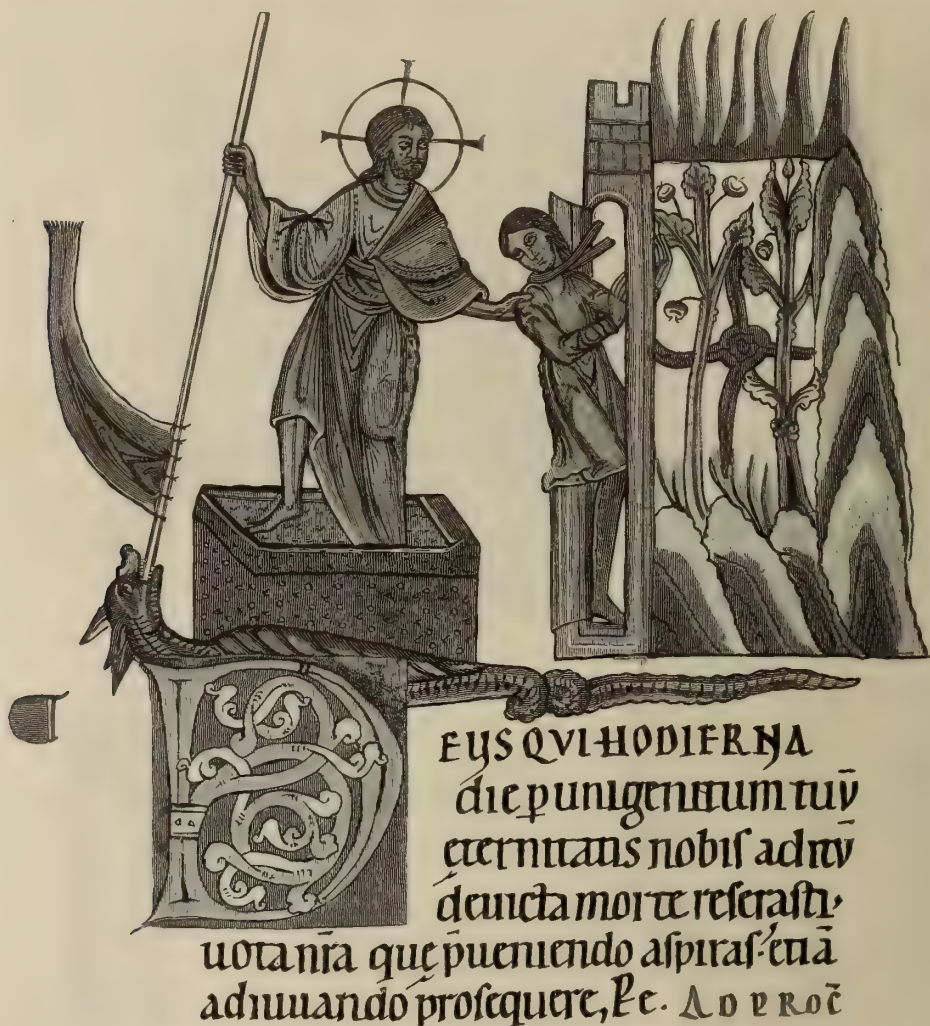 DEUS QVI HODIERNA
die p̱ unigenitum tuū
eternitatis nobis aditū
deuicta morte reserasti·
uota nr̄a que p̄ueniendo aspiras· etiā
adiuuando prosequere, Pe. AD PROC̄